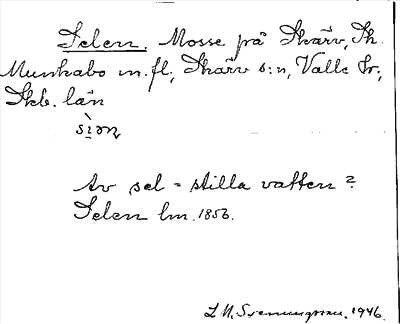 Selen. Mosse på Skärv, Sk.
Munkabo m. fl., Skärv s:n, Valle hr,
Skb. län
Av sel = stilla vatten?
Selen lm. 1856.
1946.